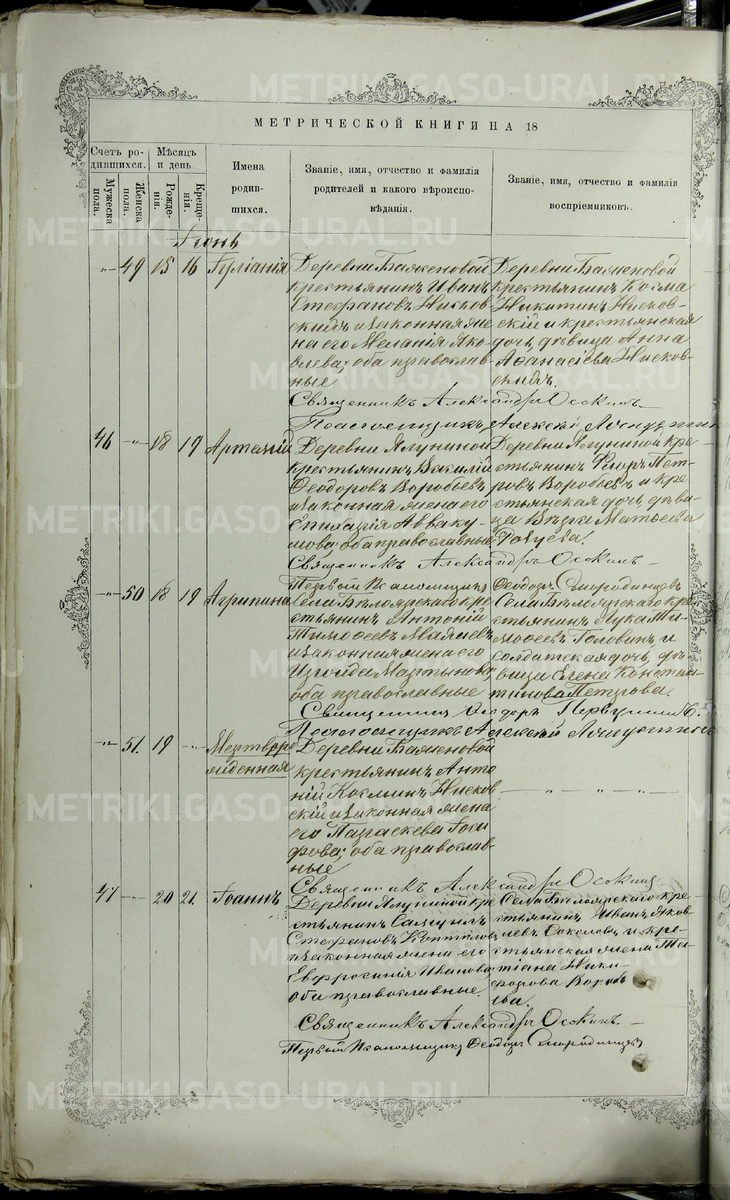 МЕТРИЧЕСКОЙ КНИГИ НА 18
Счетъ родившихся.
Мужеска пола.
Женска пола.
Мѣсяцъ и день
Рожденія.
Крещенія.
Имена
родив-
шихся.
Званіе, имя, отчество и фамилія
родителей и какого вѣроиспо-
вѣданія.
Званіе, имя, отчество и фамилія
воспріемниковъ.
Іюнь
-„- 49 15 16 Іуліанія
Деревни Баженовой
крестьянинъ Иванъ
Стефановъ Нисков-
скихъ и законная же-
на его Меланія Яко-
влева; оба православ-
ные
Деревни Баженовой
крестьянинъ Козма
Никитинъ Нисков-
скій и крестьянская
дочь, дѣвица Анна
Афанасіева Нисков-
скихъ.
Священникъ Александръ Осокинъ
Псаломщикъ Алексѣй
46 -„- 18 19 Артемій
Деревни Ялуниной
крестьянинъ Василій
Ѳеодоровъ Воробьевъ
и законная жена его
Епилазія Авваку-
мова, оба православные
Деревни Ялуниной кре-
стьянинъ Егоръ Пет-
ровъ Воробьевъ и кре-
стьянская дочь, дѣви-
ца Вѣра Матѳеева
Священникъ Александръ Осокинъ
Первый Псаломщикъ Ѳеодоръ Смородинцевъ
-„- 50 18 19 Агрипина
Села Бѣлоярскаго кре-
стьянинъ Антоній
Тимофеевъ
и законная жена его
Мартынова
оба православные
Села Бѣлоярскаго кре-
стьянинъ Лука Ти-
мофеевъ Головинъ и
солдатская дочь, дѣ-
вица Елена Констан-
тинова Петрова.
Священникъ Ѳеодоръ
Псаломщикъ Алексѣй
-„- 51. 19 -„-
Мертворо
жденная
Деревни Баженовой
крестьянинъ Анто-
ній Космин Нисков-
скій и законная жена
его Параскева Іоси-
фова; оба православ-
ные
- „ - „ - „ -
Священникъ Александръ Осокинъ
47 -„- 20 21. Іоаннъ
Деревни Ялуниной кре-
стьянинъ Самуилъ
Стефановъ
и законная жена его
Евфросинія Иванова
оба православные.
Села Бѣлоярскаго кре-
стьянинъ Иванъ Яков-
левъ Соколовъ и кре-
стьянская жена Та-
тіана Ники-
форова Воробь-
ева.
Священникъ Александръ Осокинъ.
Первый Псаломщикъ Ѳеодоръ Смородинцевъ
METRIKI.GASO-URAL.RU